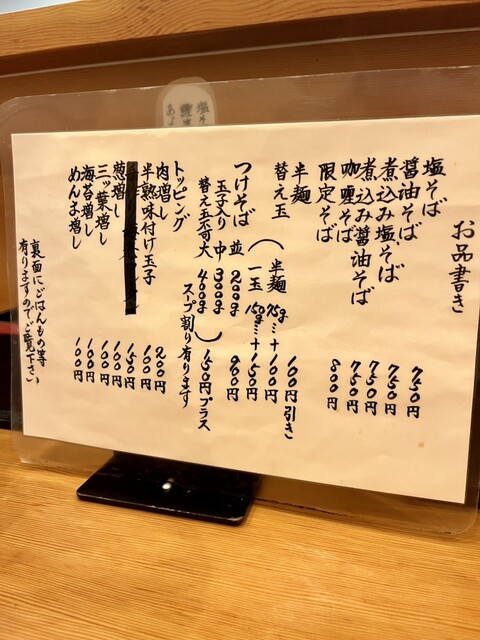 お品書き
塩そば 750円
醤油そば 750円
煮込み塩そば 750円
煮込み醤油そば 750円
咖喱そば 800円
限定そば
半麺 100円引き
替え玉 ( 半麺 75g…+100円
一玉 150g…+150円
つけそば 並 200g 900円
玉子入り 中 300g
替え玉不可 大 400g ) 150円プラス
スープ割り有ります
トッピング
肉増し 200円
半熟味付け玉子 100円
150円
葱増し 100円
三ッ葉増し 100円
海苔増し 100円
めんま増し 100円
裏面にごはんもの等
有りますのでご覧下さい